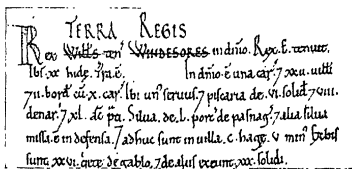 TERRA REGIS
Rex Will's ten' WINDESORES in dñio. Rex. E. tenuit.
Ibi. xx. hidę. tra. ē. In dñio. ē una car. 7 xxii. uilli
7 ii. bord cū. x. car. Ibi un' seruus. 7 piscaria de. vi. solid 7 viii.
denar. 7 xl. ac̃ p̃ti. Silua. de. l. porc' de pasnag. 7 alia silua
missa. ē in defensa. 7 adhuc sunt in uilla. c. hagę. v. min'
sunt. xxvi. quietę de gablo. 7 de aliis exeunt. xxx. solidi.